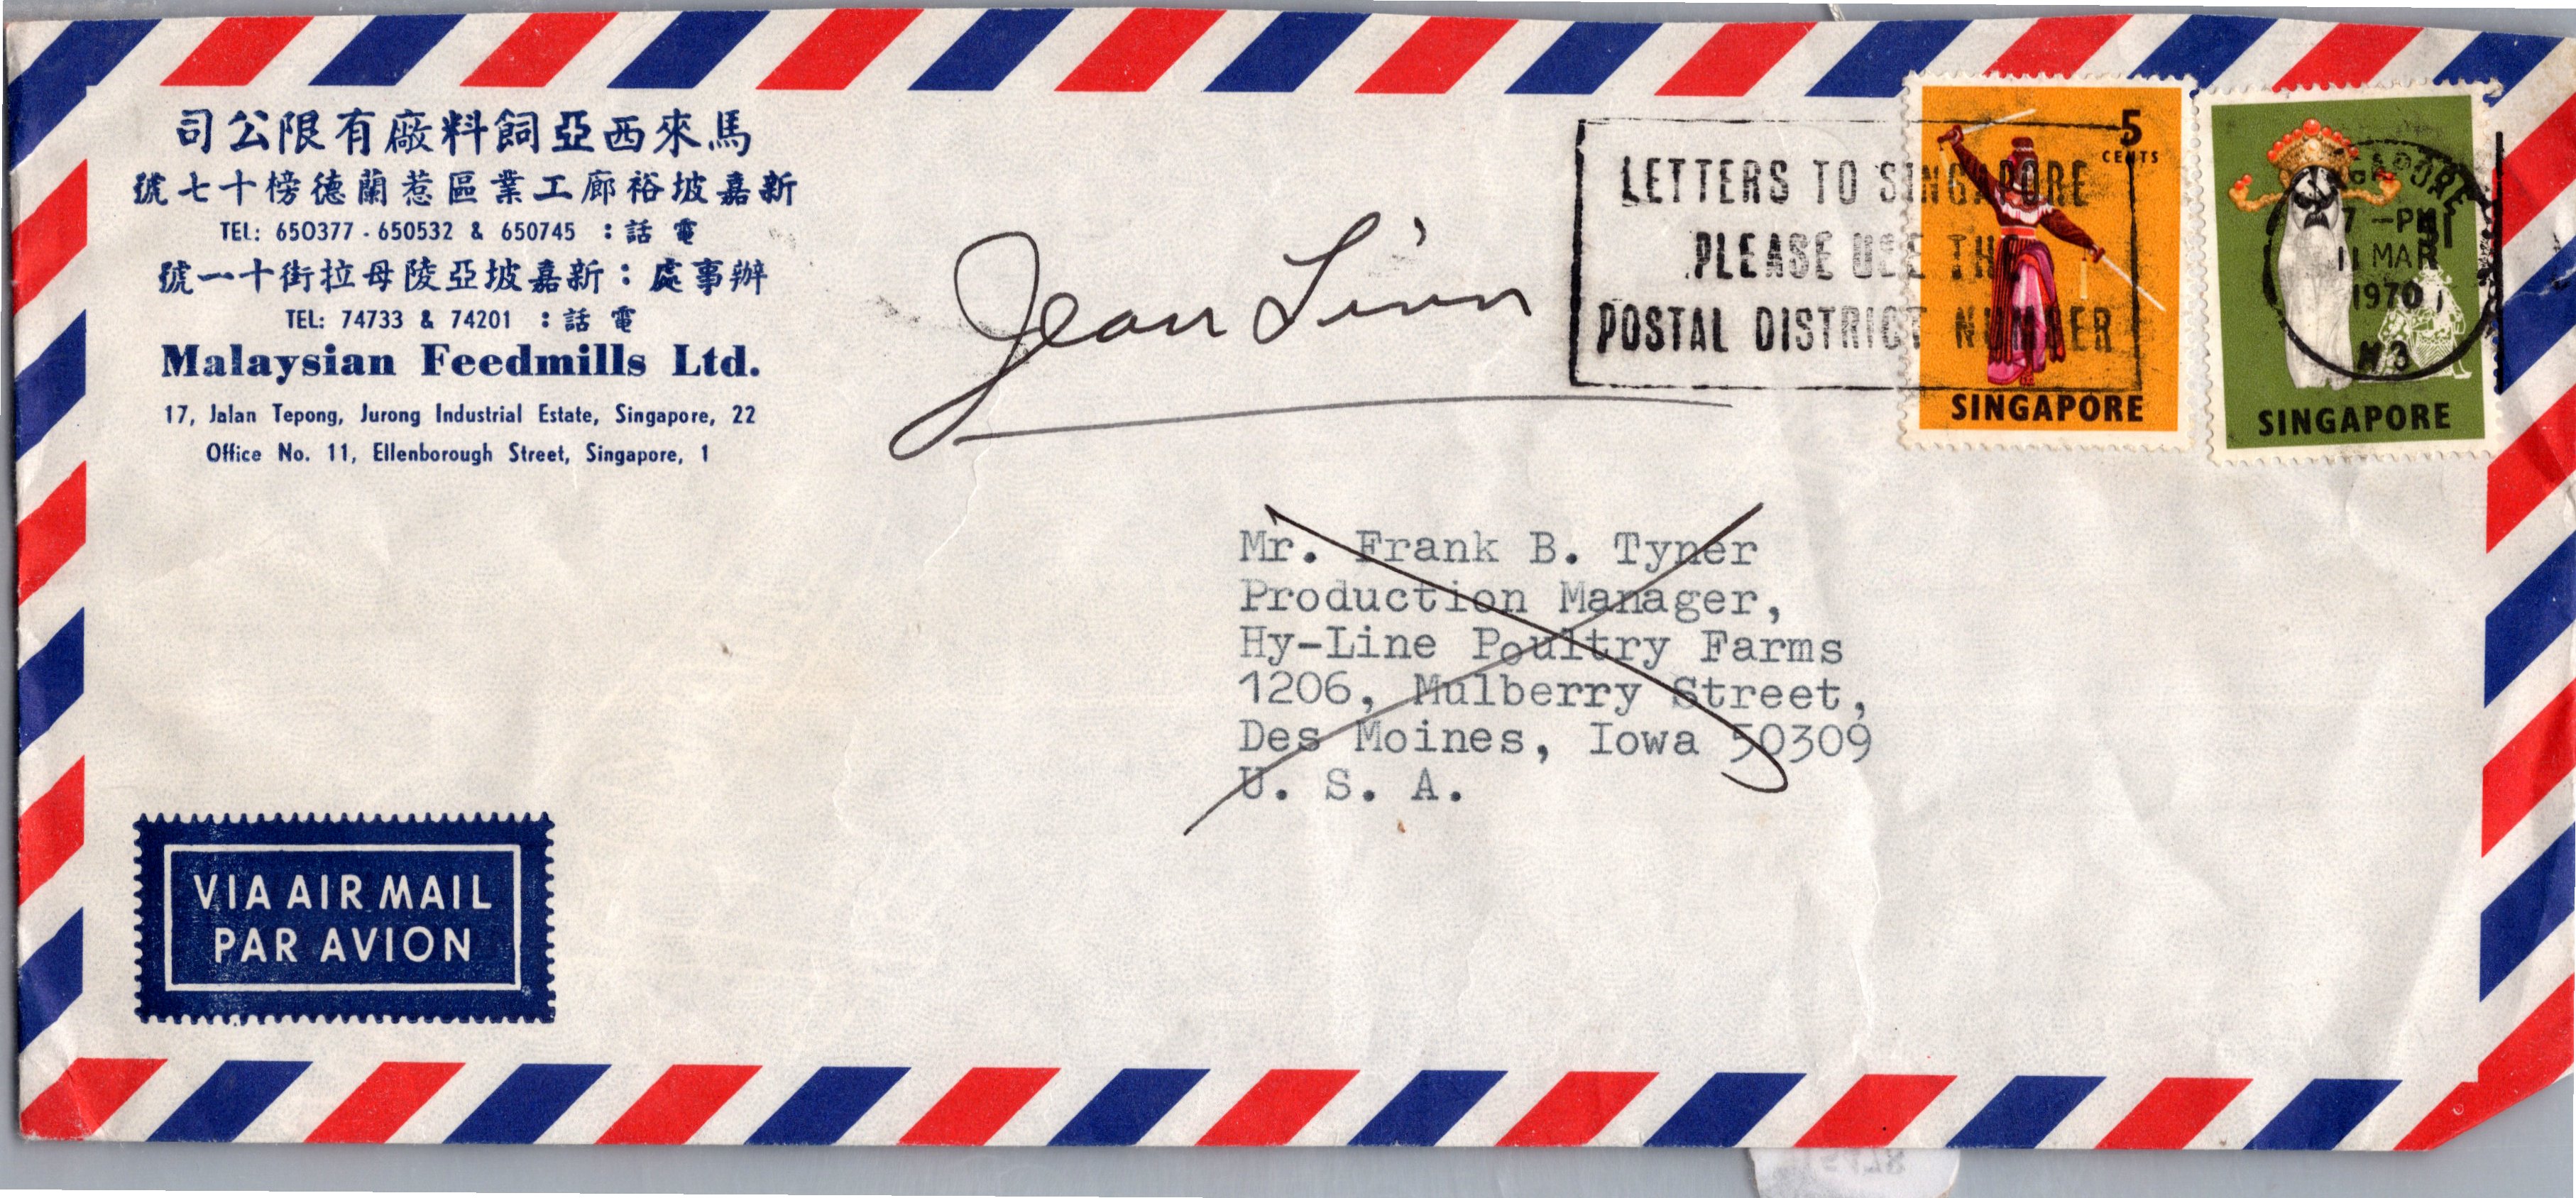 馬來西亞飼料廠有限公司
新嘉坡裕廊工業區惹蘭德榜十七號
電話： TEL: 650377 - 650532 & 650745
辦事處：新嘉坡亞陵母拉街十一號
電話： TEL: 74733 & 74201
Malaysian Feedmills Ltd.
17, Jalan Tepong, Jurong Industrial Estate, Singapore, 22
Office No. 11, Ellenborough Street, Singapore, 1
Jean Linn
LETTERS TO SINGAPORE
PLEASE USE THE
POSTAL DISTRICT NUMBER
5
CENTS
SINGAPORE
SINGAPORE
7 -PM
11 MAR
1970
SINGAPORE
Mr. Frank B. Tyner
Production Manager,
Hy-Line Poultry Farms
1206, Mulberry Street,
Des Moines, Iowa 50309
U. S. A.
VIA AIR MAIL
PAR AVION